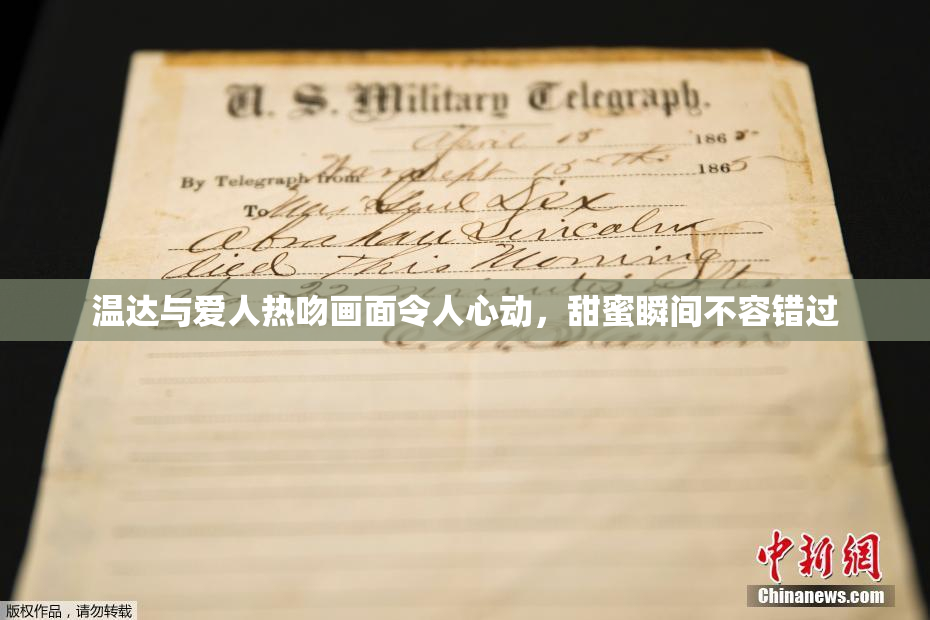 U. S. Military Telegraph.
April 15 1865
By Telegraph from War Dept 15th 1865
To Maj Genl Dix
Abraham Lincoln
died This Morning
at 22 minutes after
温达与爱人热吻画面令人心动，甜蜜瞬间不容错过
E. M. Stanton
中新网
Chinanews.com
版权作品，请勿转载